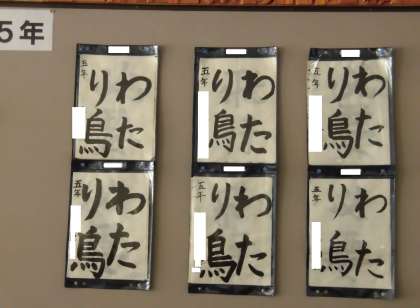 5年
わた
り鳥
五年
わた
り鳥
五年
わた
り鳥
五年
わた
り鳥
五年
わた
り鳥
五年
わた
り鳥
五年